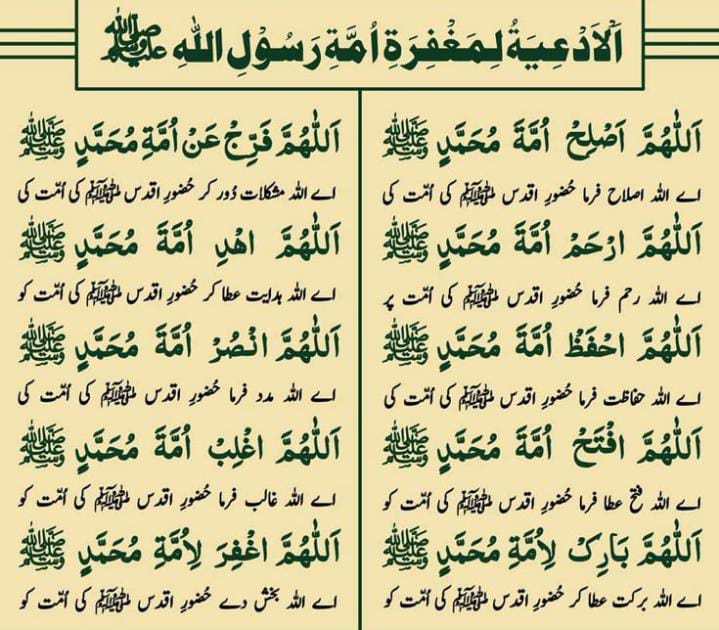 اَلْاَدْعِيَةُ لِمَغْفِرَةِ اُمَّةِ رَسُوْلِ اللهِ ﷺ
اَللّٰهُمَّ اَصْلِحْ اُمَّةَ مُحَمَّدٍ ﷺ
اے اللہ اصلاح فرما حُضورِ اقدس ﷺ کی اُمّت کی
اَللّٰهُمَّ ارْحَمْ اُمَّةَ مُحَمَّدٍ ﷺ
اے اللہ رحم فرما حُضورِ اقدس ﷺ کی اُمّت پر
اَللّٰهُمَّ احْفَظْ اُمَّةَ مُحَمَّدٍ ﷺ
اے اللہ حفاظت فرما حُضورِ اقدس ﷺ کی اُمّت کی
اَللّٰهُمَّ افْتَحْ اُمَّةَ مُحَمَّدٍ ﷺ
اے اللہ فتح عطا فرما حُضورِ اقدس ﷺ کی اُمّت کو
اَللّٰهُمَّ بَارِكْ لِاُمَّةِ مُحَمَّدٍ ﷺ
اے اللہ برکت عطا کر حُضورِ اقدس ﷺ کی اُمّت کو
اَللّٰهُمَّ فَرِّجْ عَنْ اُمَّةِ مُحَمَّدٍ ﷺ
اے اللہ مشکلات دُور کر حُضورِ اقدس ﷺ کی اُمّت کی
اَللّٰهُمَّ اهْدِ اُمَّةَ مُحَمَّدٍ ﷺ
اے اللہ ہدایت عطا کر حُضورِ اقدس ﷺ کی اُمّت کو
اَللّٰهُمَّ انْصُرْ اُمَّةَ مُحَمَّدٍ ﷺ
اے اللہ مدد فرما حُضورِ اقدس ﷺ کی اُمّت کی
اَللّٰهُمَّ اغْلِبْ اُمَّةَ مُحَمَّدٍ ﷺ
اے اللہ غالب فرما حُضورِ اقدس ﷺ کی اُمّت کو
اَللّٰهُمَّ اغْفِرَ لِاُمَّةِ مُحَمَّدٍ ﷺ
اے اللہ بخش دے حُضورِ اقدس ﷺ کی اُمّت کو